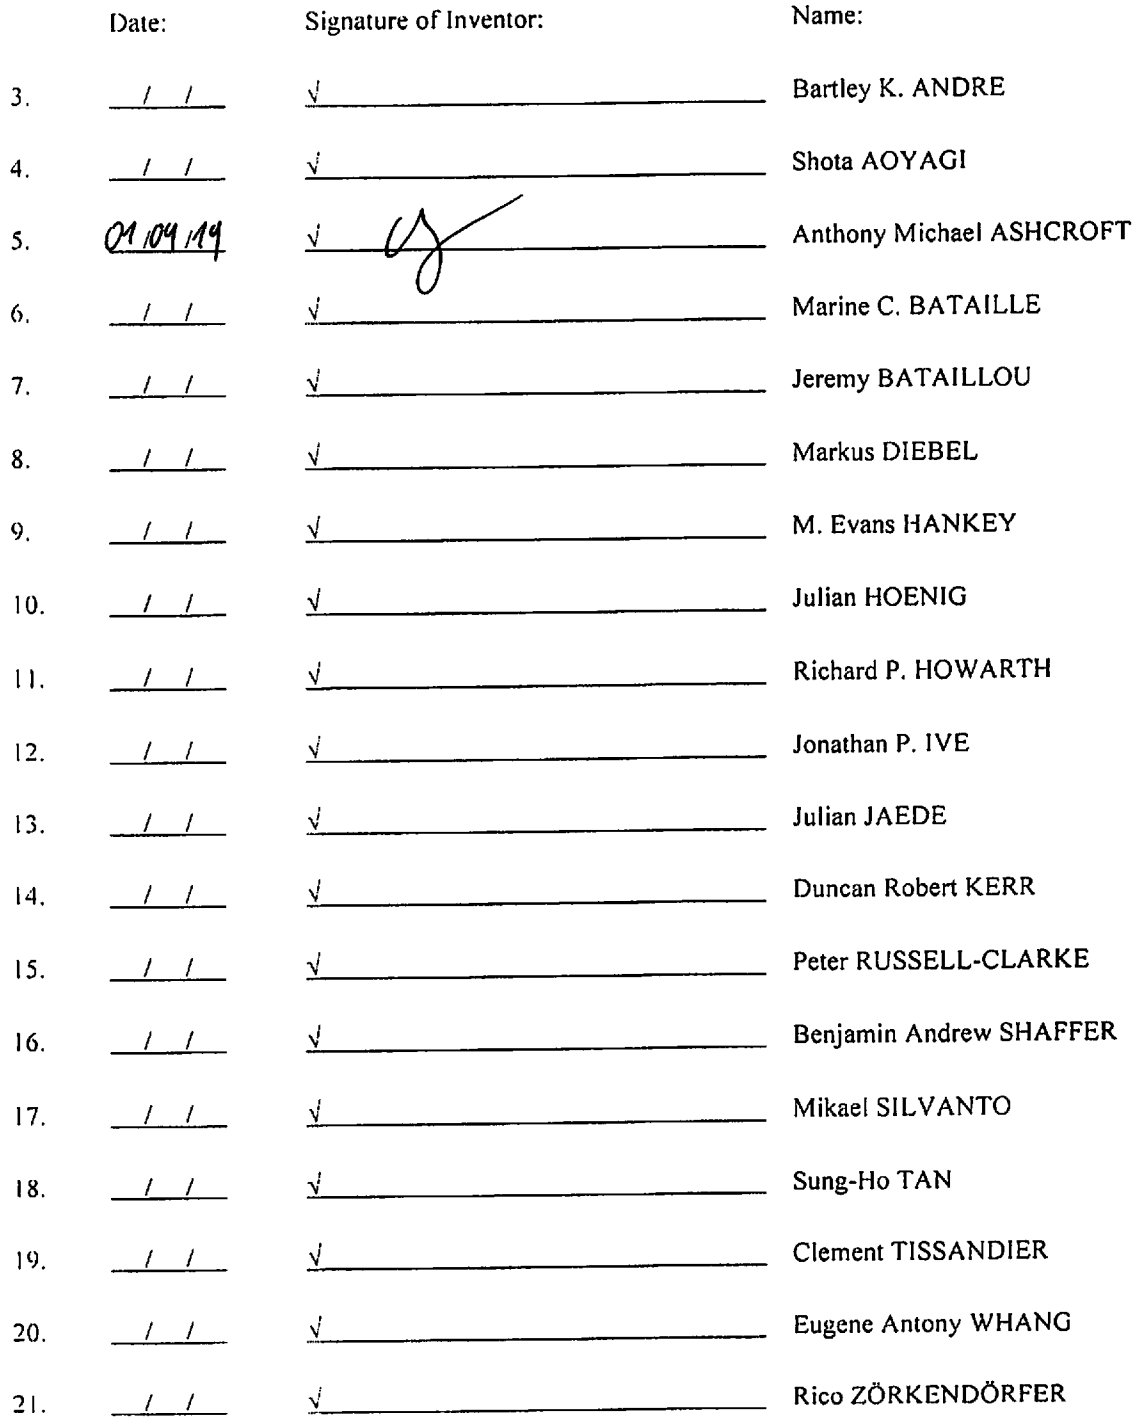 Date: Signature of Inventor: Name:
3. / / √ Bartley K. ANDRE
4. / / √ Shota AOYAGI
5. 01/09/19 √ Anthony Michael ASHCROFT
6. / / √ Marine C. BATAILLE
7. / / √ Jeremy BATAILLOU
8. / / √ Markus DIEBEL
9. / / √ M. Evans HANKEY
10. / / √ Julian HOENIG
11. / / √ Richard P. HOWARTH
12. / / √ Jonathan P. IVE
13. / / √ Julian JAEDE
14. / / √ Duncan Robert KERR
15. / / √ Peter RUSSELL-CLARKE
16. / / √ Benjamin Andrew SHAFFER
17. / / √ Mikael SILVANTO
18. / / √ Sung-Ho TAN
19. / / √ Clement TISSANDIER
20. / / √ Eugene Antony WHANG
21. / / √ Rico ZÖRKENDÖRFER